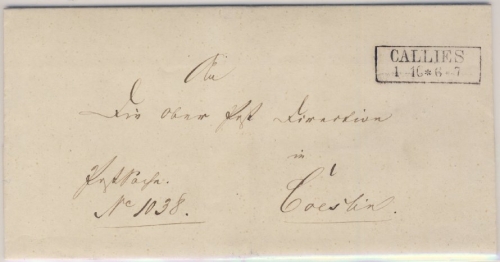 CALLIES
1 16 * 6-7
An
Die Ober Post Direction
in
Coeslin.
Postsache.
No 1038.